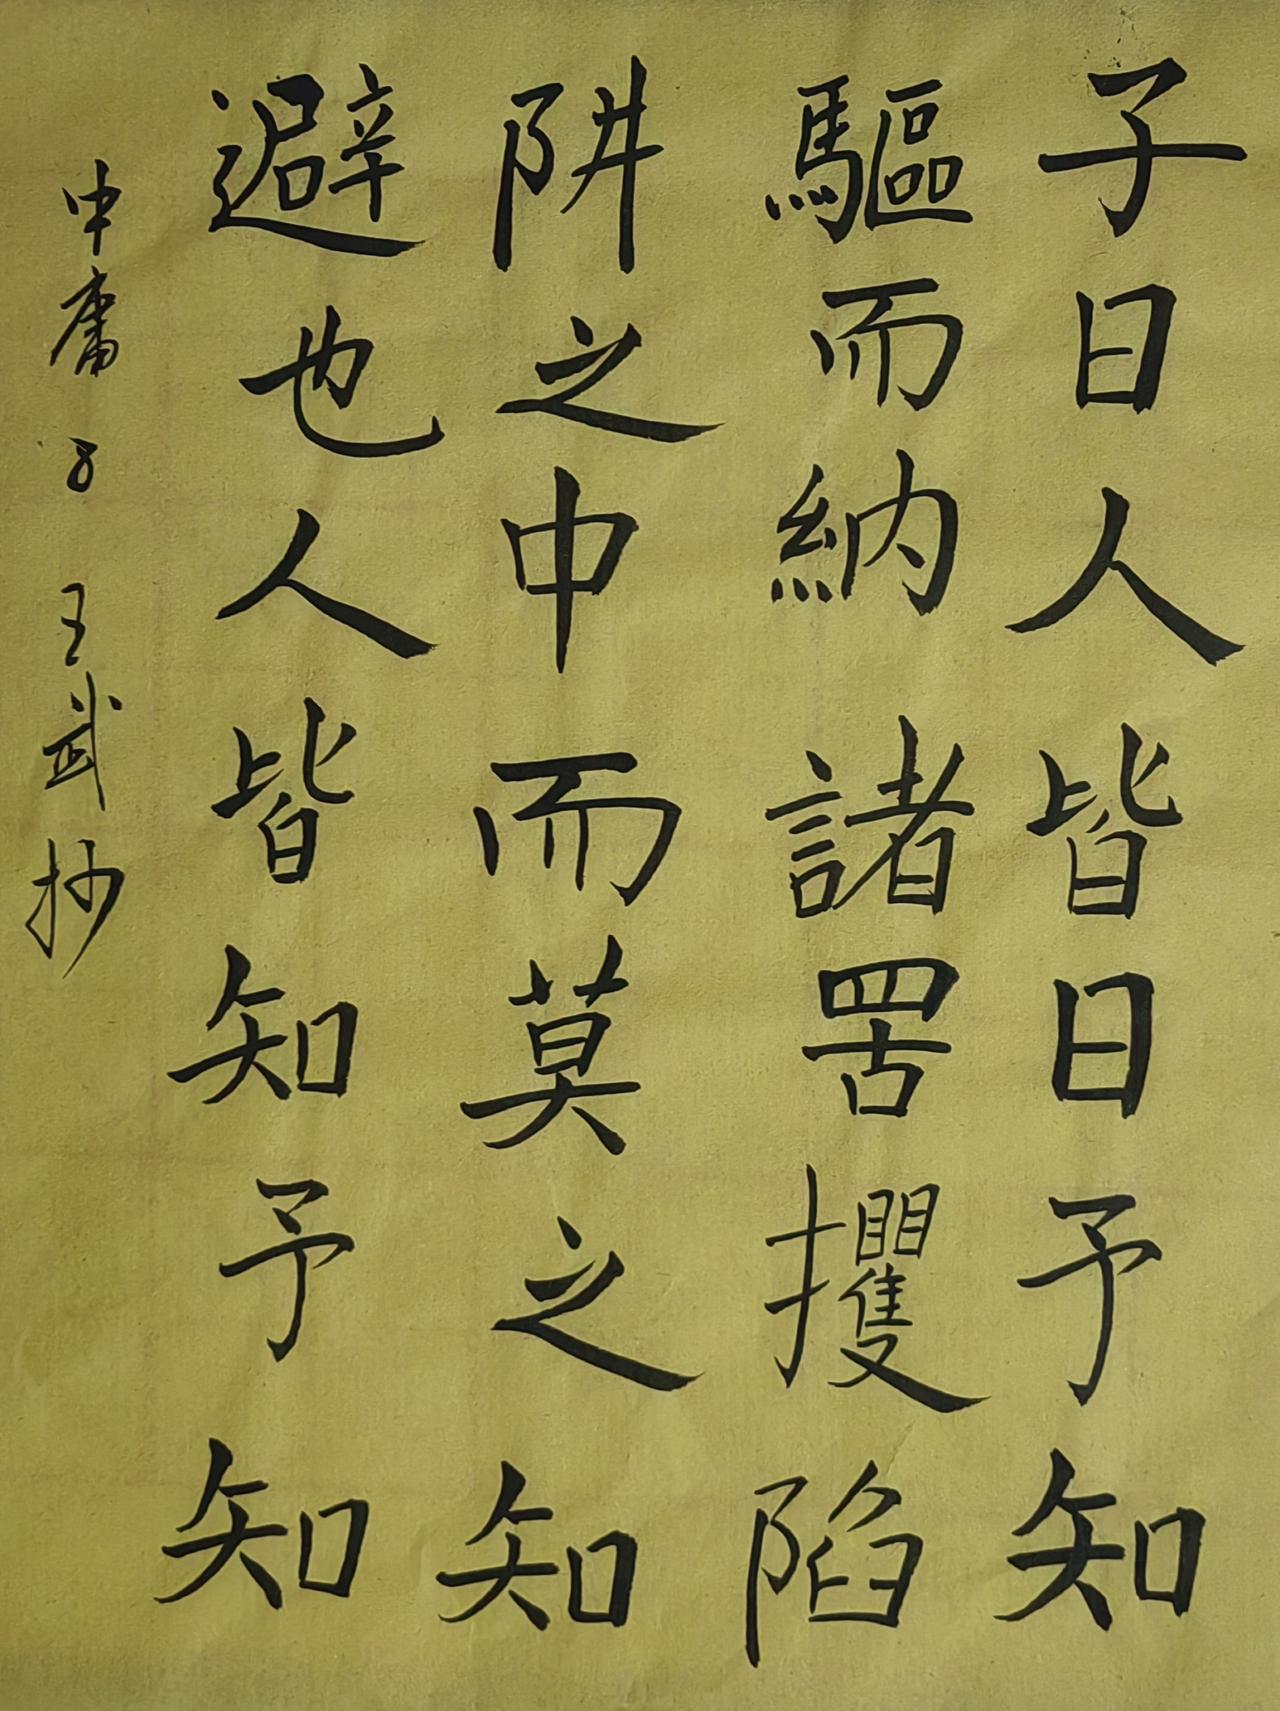 子曰人皆曰予知
驅而納諸罟攫陷
阱之中而莫之知
避也人皆知予知
中庸 王武抄